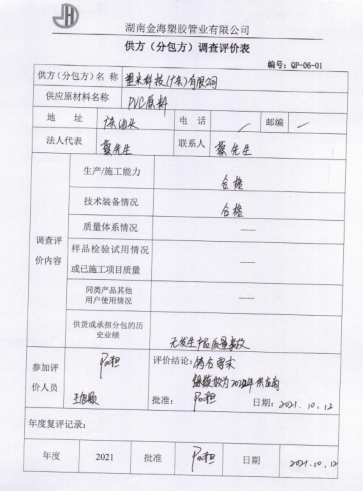 JH
湖南金海塑胶管业有限公司
供方（分包方）调查评价表
编号：QP-06-01
供方（分包方）名称 塑米科技(广东)有限公司
供应原材料名称 PVC原料
地 址 电 话 / 邮编 /
法人代表 蔡先生 联系人 蔡先生
调查评价内容
生产/施工能力 合格
技术装备情况 合格
质量体系情况 ——
样品检验试用情况
或已施工项目质量 ——
同类产品其他
用户使用情况 ——
供货或承担分包的历
史业绩 无发生产品质量事故
参加评
价人员
评价结论：符合要求
继续作为2022年供应商
批准： 日期：2021.10.12
年度复评记录：
年度 2021 批准 日期 2021.10.12